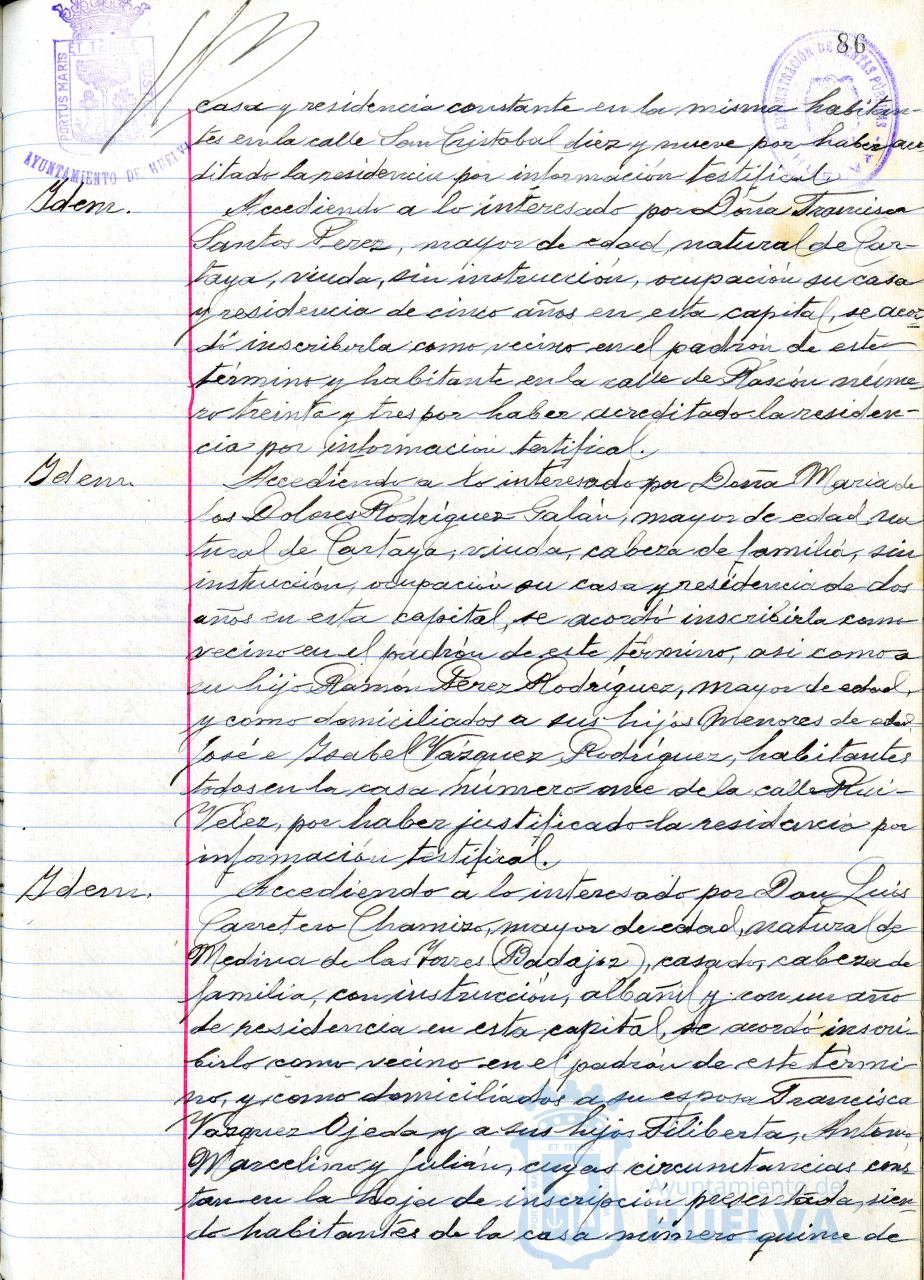 86
PORTUS MARIS ET TERRÆ CUSTODIA
AYUNTAMIENTO DE HUELVA
ADMINISTRACIÓN DE RENTAS PÚBLICAS
casa y residencia constante en la misma habitan-
tes en la calle San Cristobal diez y nueve por haber acre
ditado la residencia por información testifical.
Idem.
Accediendo a lo interesado por Doña Francisca
Santos Perez, mayor de edad, natural de Car-
taya, viuda, sin instrucción, ocupación su casa
y residencia de cinco años en esta capital, se acor
dó inscribirla como vecino en el padrón de este
término y habitante en la calle de Rascón núme-
ro treinta y tres por haber acreditado la residen-
cia por información testifical.
Idem.
Accediendo a lo interesado por Doña Maria de
los Dolores Rodríguez Galán, mayor de edad, na
tural de Cartaya, viuda, cabeza de familia, sin
instrución, ocupación su casa y residencia de dos
años en esta capital, se acordó inscribirla como
vecino en el padrón de este término, asi como a
su hijo Ramón Pérez Rodríguez, mayor de edad,
y como domiciliados a sus hijos menores de edad
José e Ysabel Vázquez Rodríguez, habitantes
todos en la casa número once de la calle Rui-
Vélez, por haber justificado la residencia por
información testifical.
Idem.
Accediendo a lo interesado por Don Luis
Carretero Chamizo, mayor de edad, natural de
Medina de las Torres (Badajoz), casado, cabeza de
familia, con instrucción, albañil y con un año
de residencia en esta capital, se acordó inscri-
birlo como vecino en el padrón de este térmi-
no, y como domiciliados a su esposa Francisca
Vazquez Ojeda y a sus hijos Filiberta, Anton.
Marcelino y Julián, cuyas circunstancias cons-
tan en la hoja de inscripción presentada, sien-
do habitantes de la casa número quince de
Ayuntamiento de
HUELVA